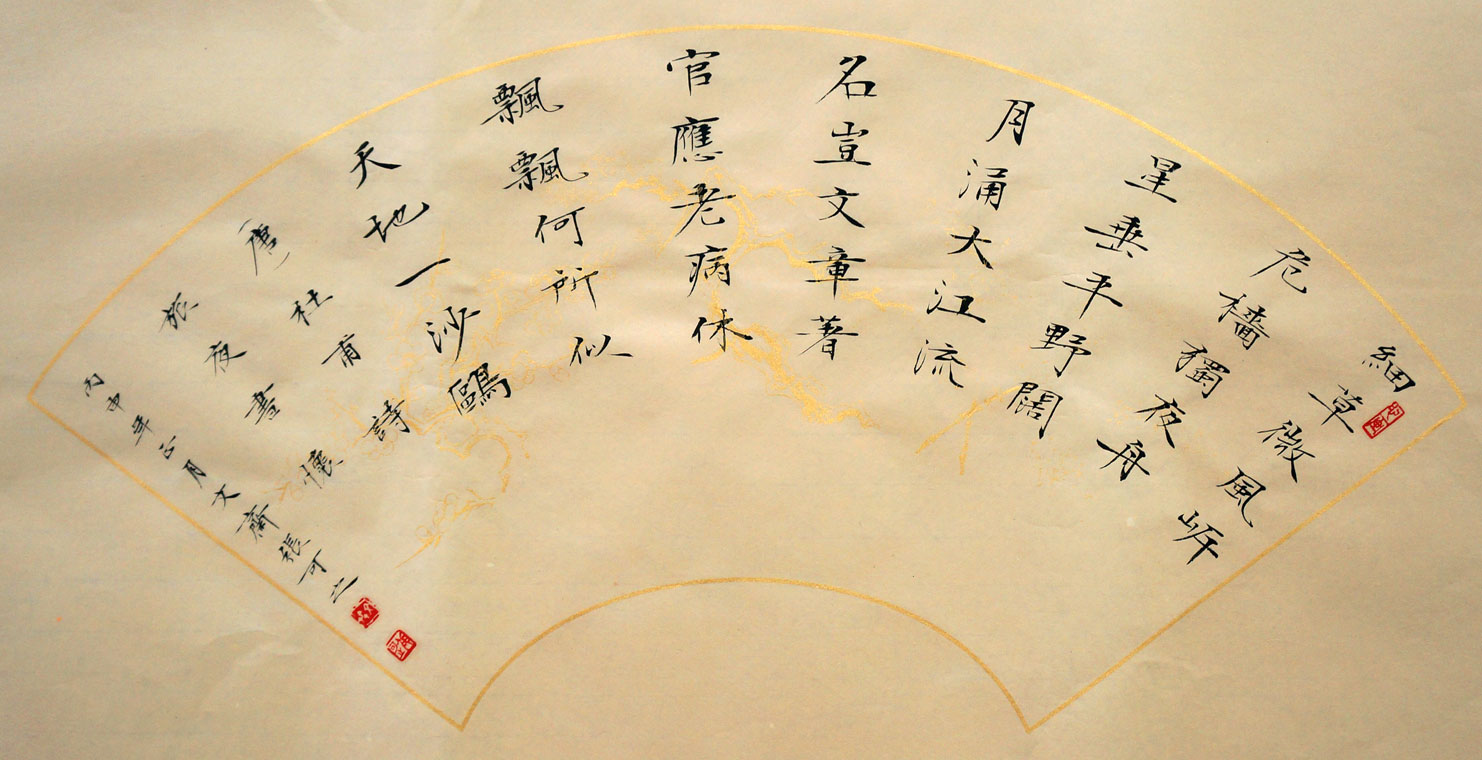 細草微風岸
危檣獨夜舟
星垂平野闊
月涌大江流
名豈文章著
官應老病休
飄飄何所似
天地一沙鷗
唐杜甫詩
旅夜書懷
丙申年六月文齋張可之